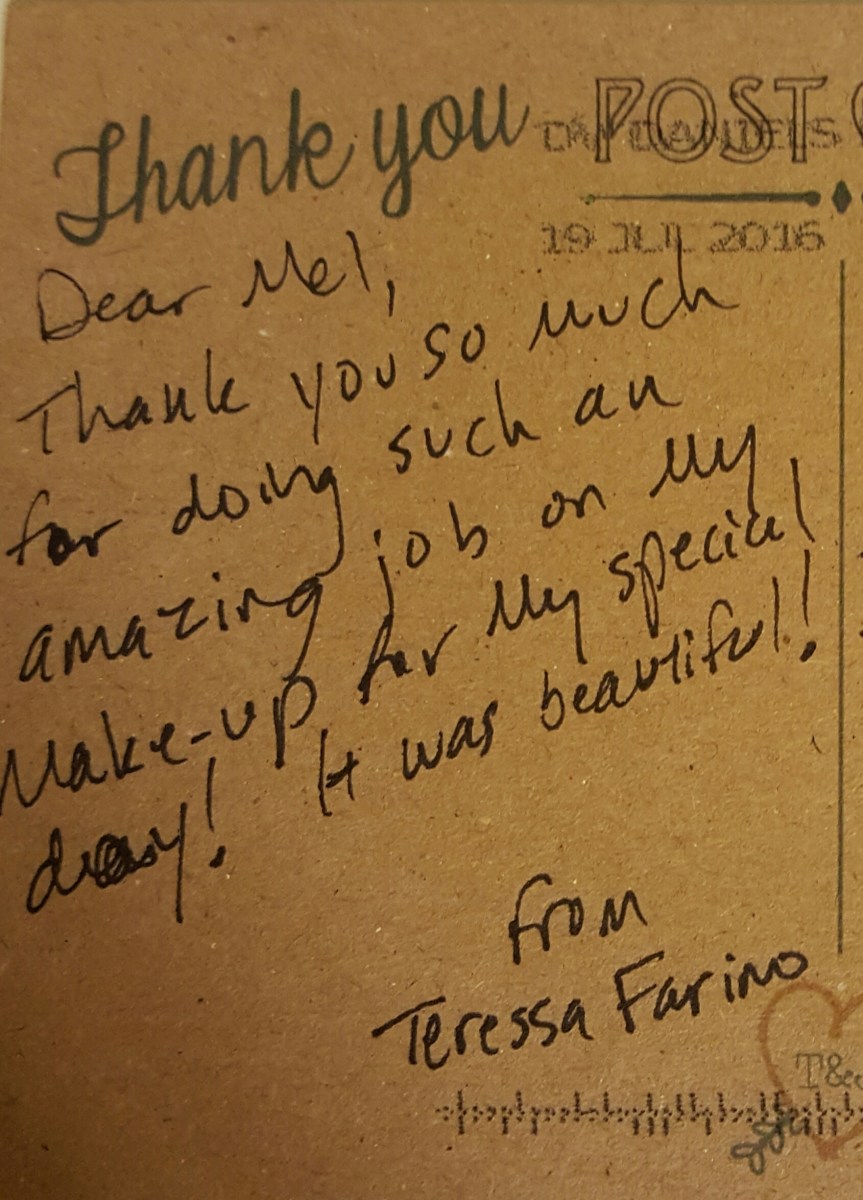 Thank you POST
DANIELS
19 JUL 2016
Dear Mel,
Thank you so much
for doing such an
amazing job on My
Make-up for My special
day! It was beautiful!
from
Teressa Farino
T&